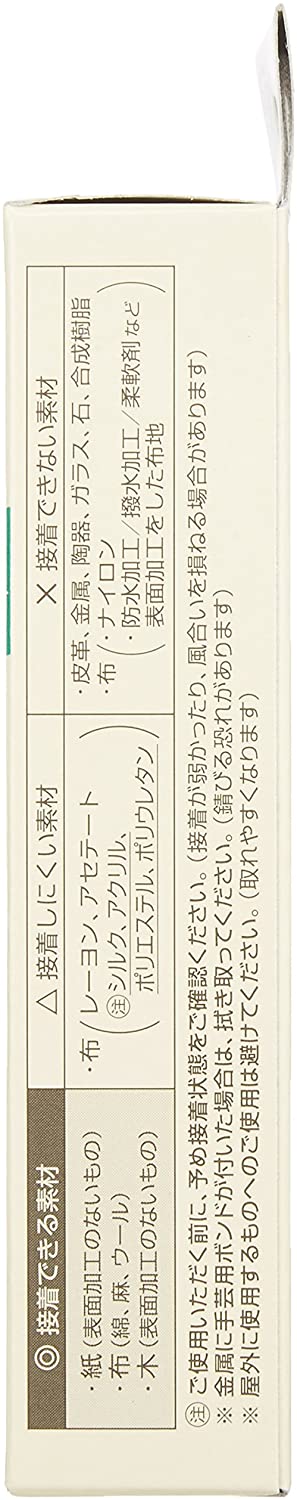 ◎ 接着できる素材
・紙(表面加工のないもの)
・布(綿、麻、ウール)
・木(表面加工のないもの)
△ 接着しにくい素材
・布(レーヨン、アセテート
注 シルク、アクリル、
ポリエステル、ポリウレタン)
× 接着できない素材
・皮革、金属、陶器、ガラス、石、合成樹脂
・布(・ナイロン
・防水加工/撥水加工/柔軟剤など
表面加工をした布地)
注 ご使用いただく前に、予め接着状態をご確認ください。(接着が弱かったり、風合いを損ねる場合があります)
※ 金属に手芸用ボンドが付いた場合は、拭き取ってください。(錆びる恐れがあります)
※ 屋外に使用するものへのご使用は避けてください。(取れやすくなります)